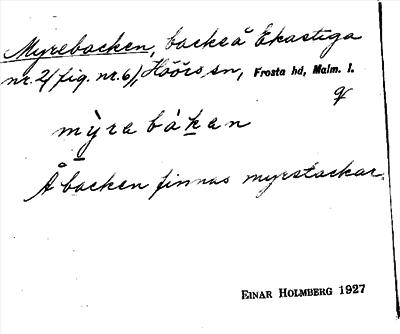 Myrebacken, backe å Ekastiga
nr. 2 (fig. nr. 6), Höörs sn, Frosta hd, Malm. l.
my̆ra bàḵen
Å backen finnas myrstackar.
EINAR HOLMBERG 1927